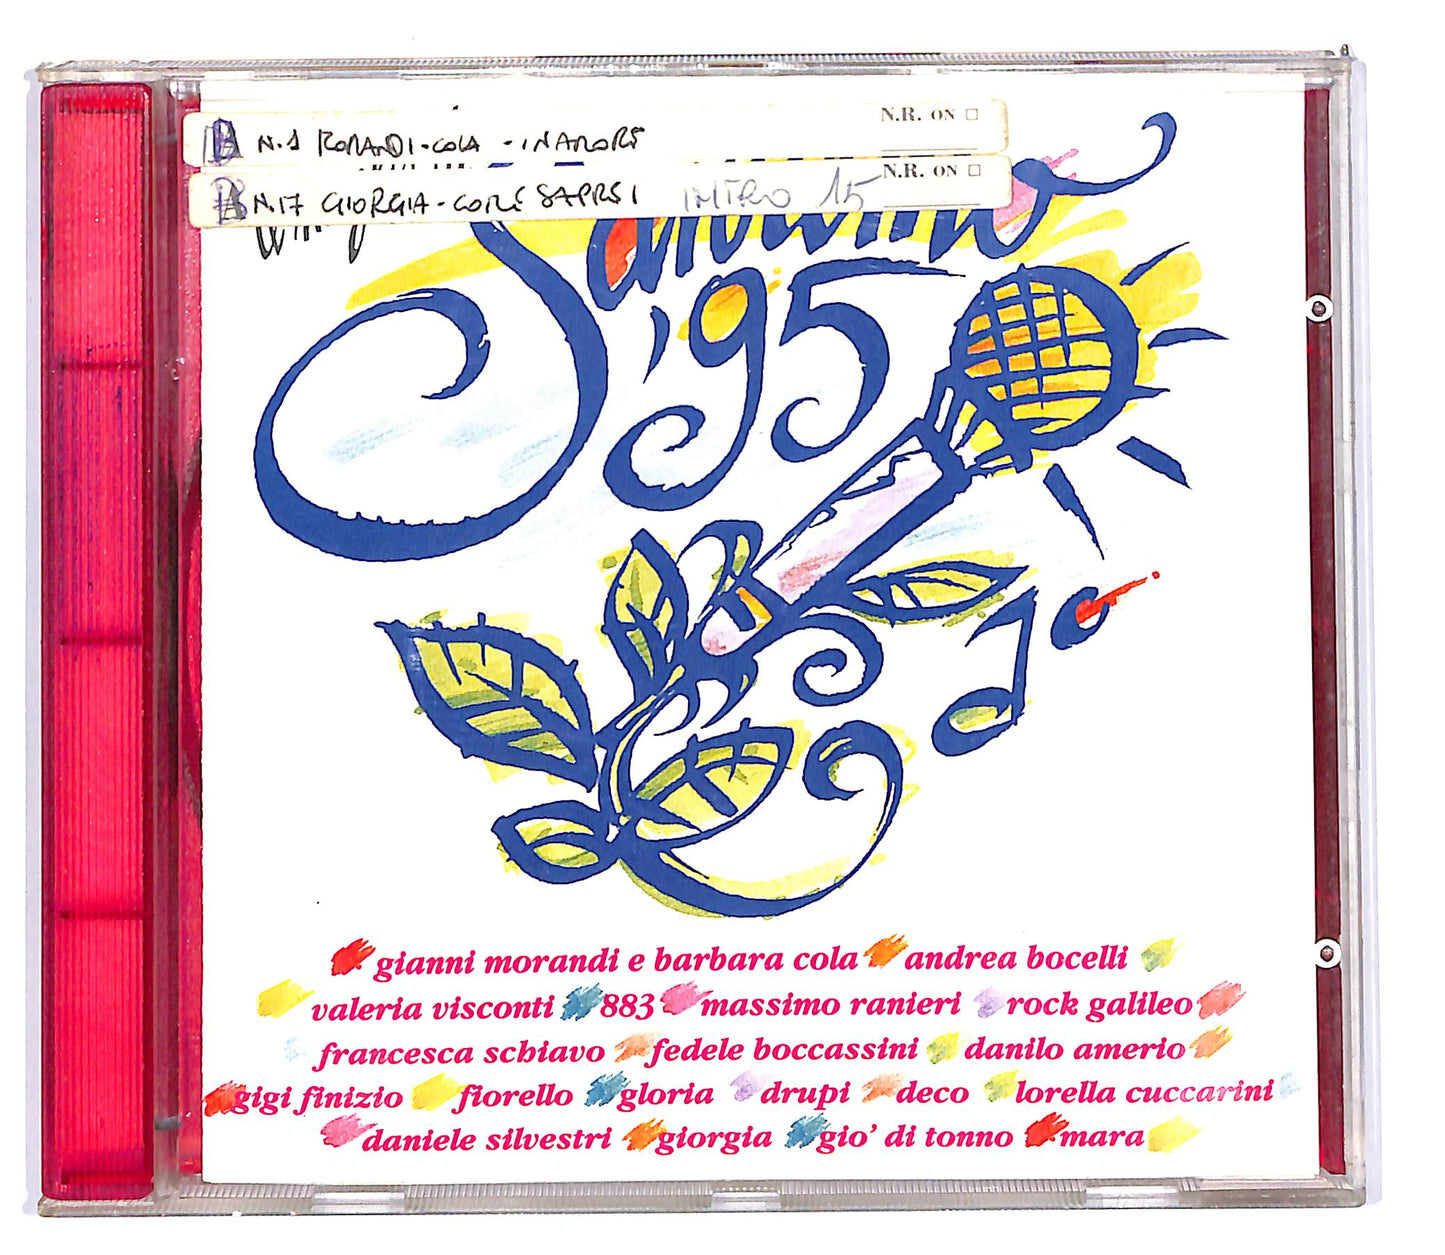 N.R. ON
N.1 MORANDI-COLA - IN AMORE
N.R. ON
A N.17 GIORGIA - COME SAPREI INTRO 15
Sanremo
'95
gianni morandi e barbara cola andrea bocelli
valeria visconti 883 massimo ranieri rock galileo
francesca schiavo fedele boccassini danilo amerio
gigi finizio fiorello gloria drupi deco lorella cuccarini
daniele silvestri giorgia gio' di tonno mara